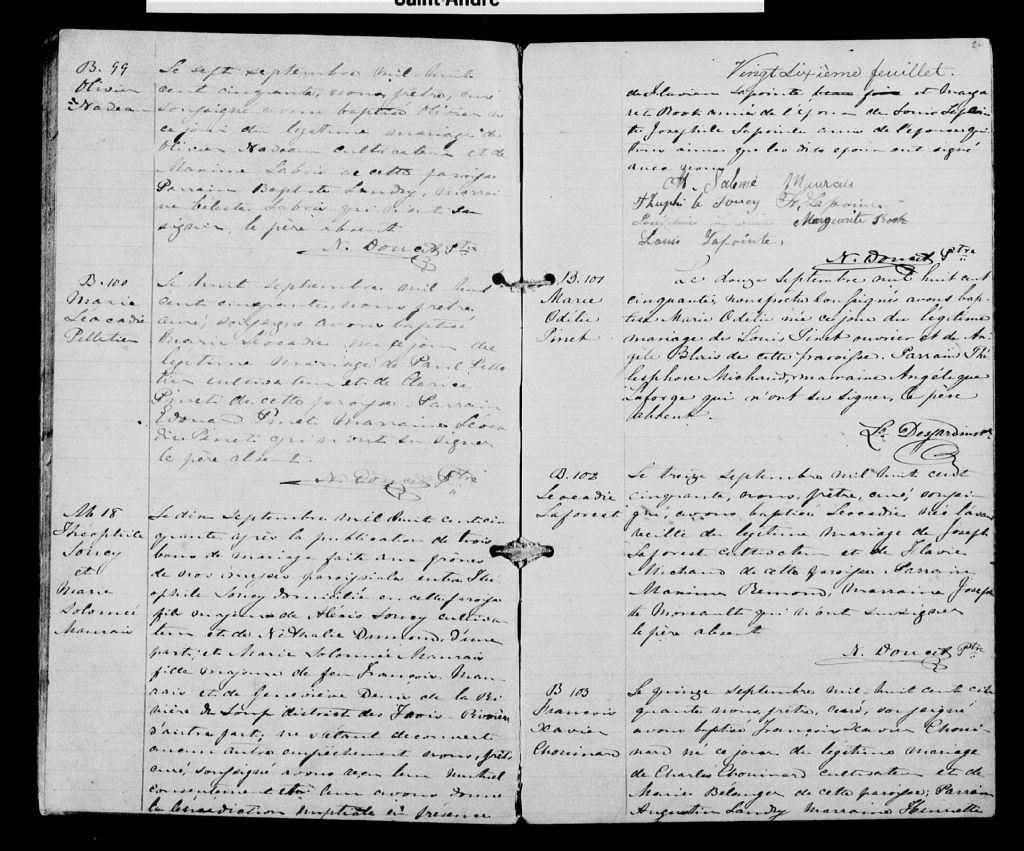 Saint-André
B. 99
Olivier
Nadeau
Le sept septembre mil huit
cent cinquante, nous, prêtre, curé
soussigné avons baptisé Olivier né
ce jour du légitime mariage de
Olivier Nadeau cultivateur et de
Maxime Labrie de cette paroisse
Parrain Baptiste Landry, marrai
ne Celeste Labrie qui n'ont su
signer, le père absent
N. Doucet Ptre
B. 100
Marie
Léocadie
Pelletier
Le huit septembre mil huit
cent cinquante, nous prêtre,
curé, soussigné avons baptisé
Marie Léocadie née ce jour du
légitime mariage de Paul Pelle
tier cultivateur et de Clarice
Pinet de cette paroisse. Parrain
Edouard Pinet Marraine Léoca
die Pinet qui n'ont su signer
le père absent.
N. Doucet Ptre
M 18
Théophile
Soucy
et
Marie
Solomée
Maurais
Le dix Septembre mil huit cent cin
quante après la publication de trois
bans de mariage faite aux prônes
de nos messes paroissiales entre Thé
ophile Soucy domicilié en cette paroisse
fils majeur de Alexis Soucy cultiva
teur et de Nathalie Dumond, d'une
part; et Marie Solomée Maurais
fille majeure de feu François Mau
rais et de Geneviève Denis de la Ri
vière du Loup district des Trois-Rivières
d'autre part, ne s'étant découvert
aucun autre empêchement nous, prêtre
curé, soussigné avons reçu leur mutuel
consentement et leur avons donné
la bénédiction nuptiale en présence
Vingt Sixième feuillet.
de Flavien Lapointe et Marga
ret Rook amie de l'époux de Louis Lapoin
te Josephte Lapointe amis de l'épouse qui
tous ainsi que les dits époux ont signé
avec nous
M. Salomé Meurais
Thephile Soucy F. Lapointe
Marguerite Rook
Louis Lapointe.
N. Doucet Ptre
B. 101
Marie
Odilie
Pinet
Le douze Septembre mil huit cent
cinquante; nous prêtre soussignés avons bap
tisé Marie Odilie née ce jour du légitime
mariage de Louis Pinet ouvrier et de An
gèle Blais de cette paroisse. Parrain Thé
lesphore Michaud, marraine Angelique
Laforge qui n'ont su signer, le père
absent.
Ls. Desjardins Ptr
B. 102
Leocadie
Laforest
Le treize septembre mil huit cent
cinquante, nous, prêtre, curé, soussi
gné avons baptisé Leocadie née l'avant
veille du légitime mariage de Joseph
Laforest cultivateur et de Flavie
Michaud de cette paroisse. Parrain
Maxime Remond, Marraine Joseph
te Moreault qui n'ont su signer
le père absent
N. Doucet Ptre
B 103
Francois
Xavier
Chouinard
Le quinze septembre mil huit cent cin
quante nous, prêtre, curé, soussigné
avons baptisé François Xavier Choui
nard né ce jour du légitime mariage
de Charles Chouinard cultivateur et de
Marie Belanger de cette paroisse; Parrain
Augustin Landry Marraine Henriette